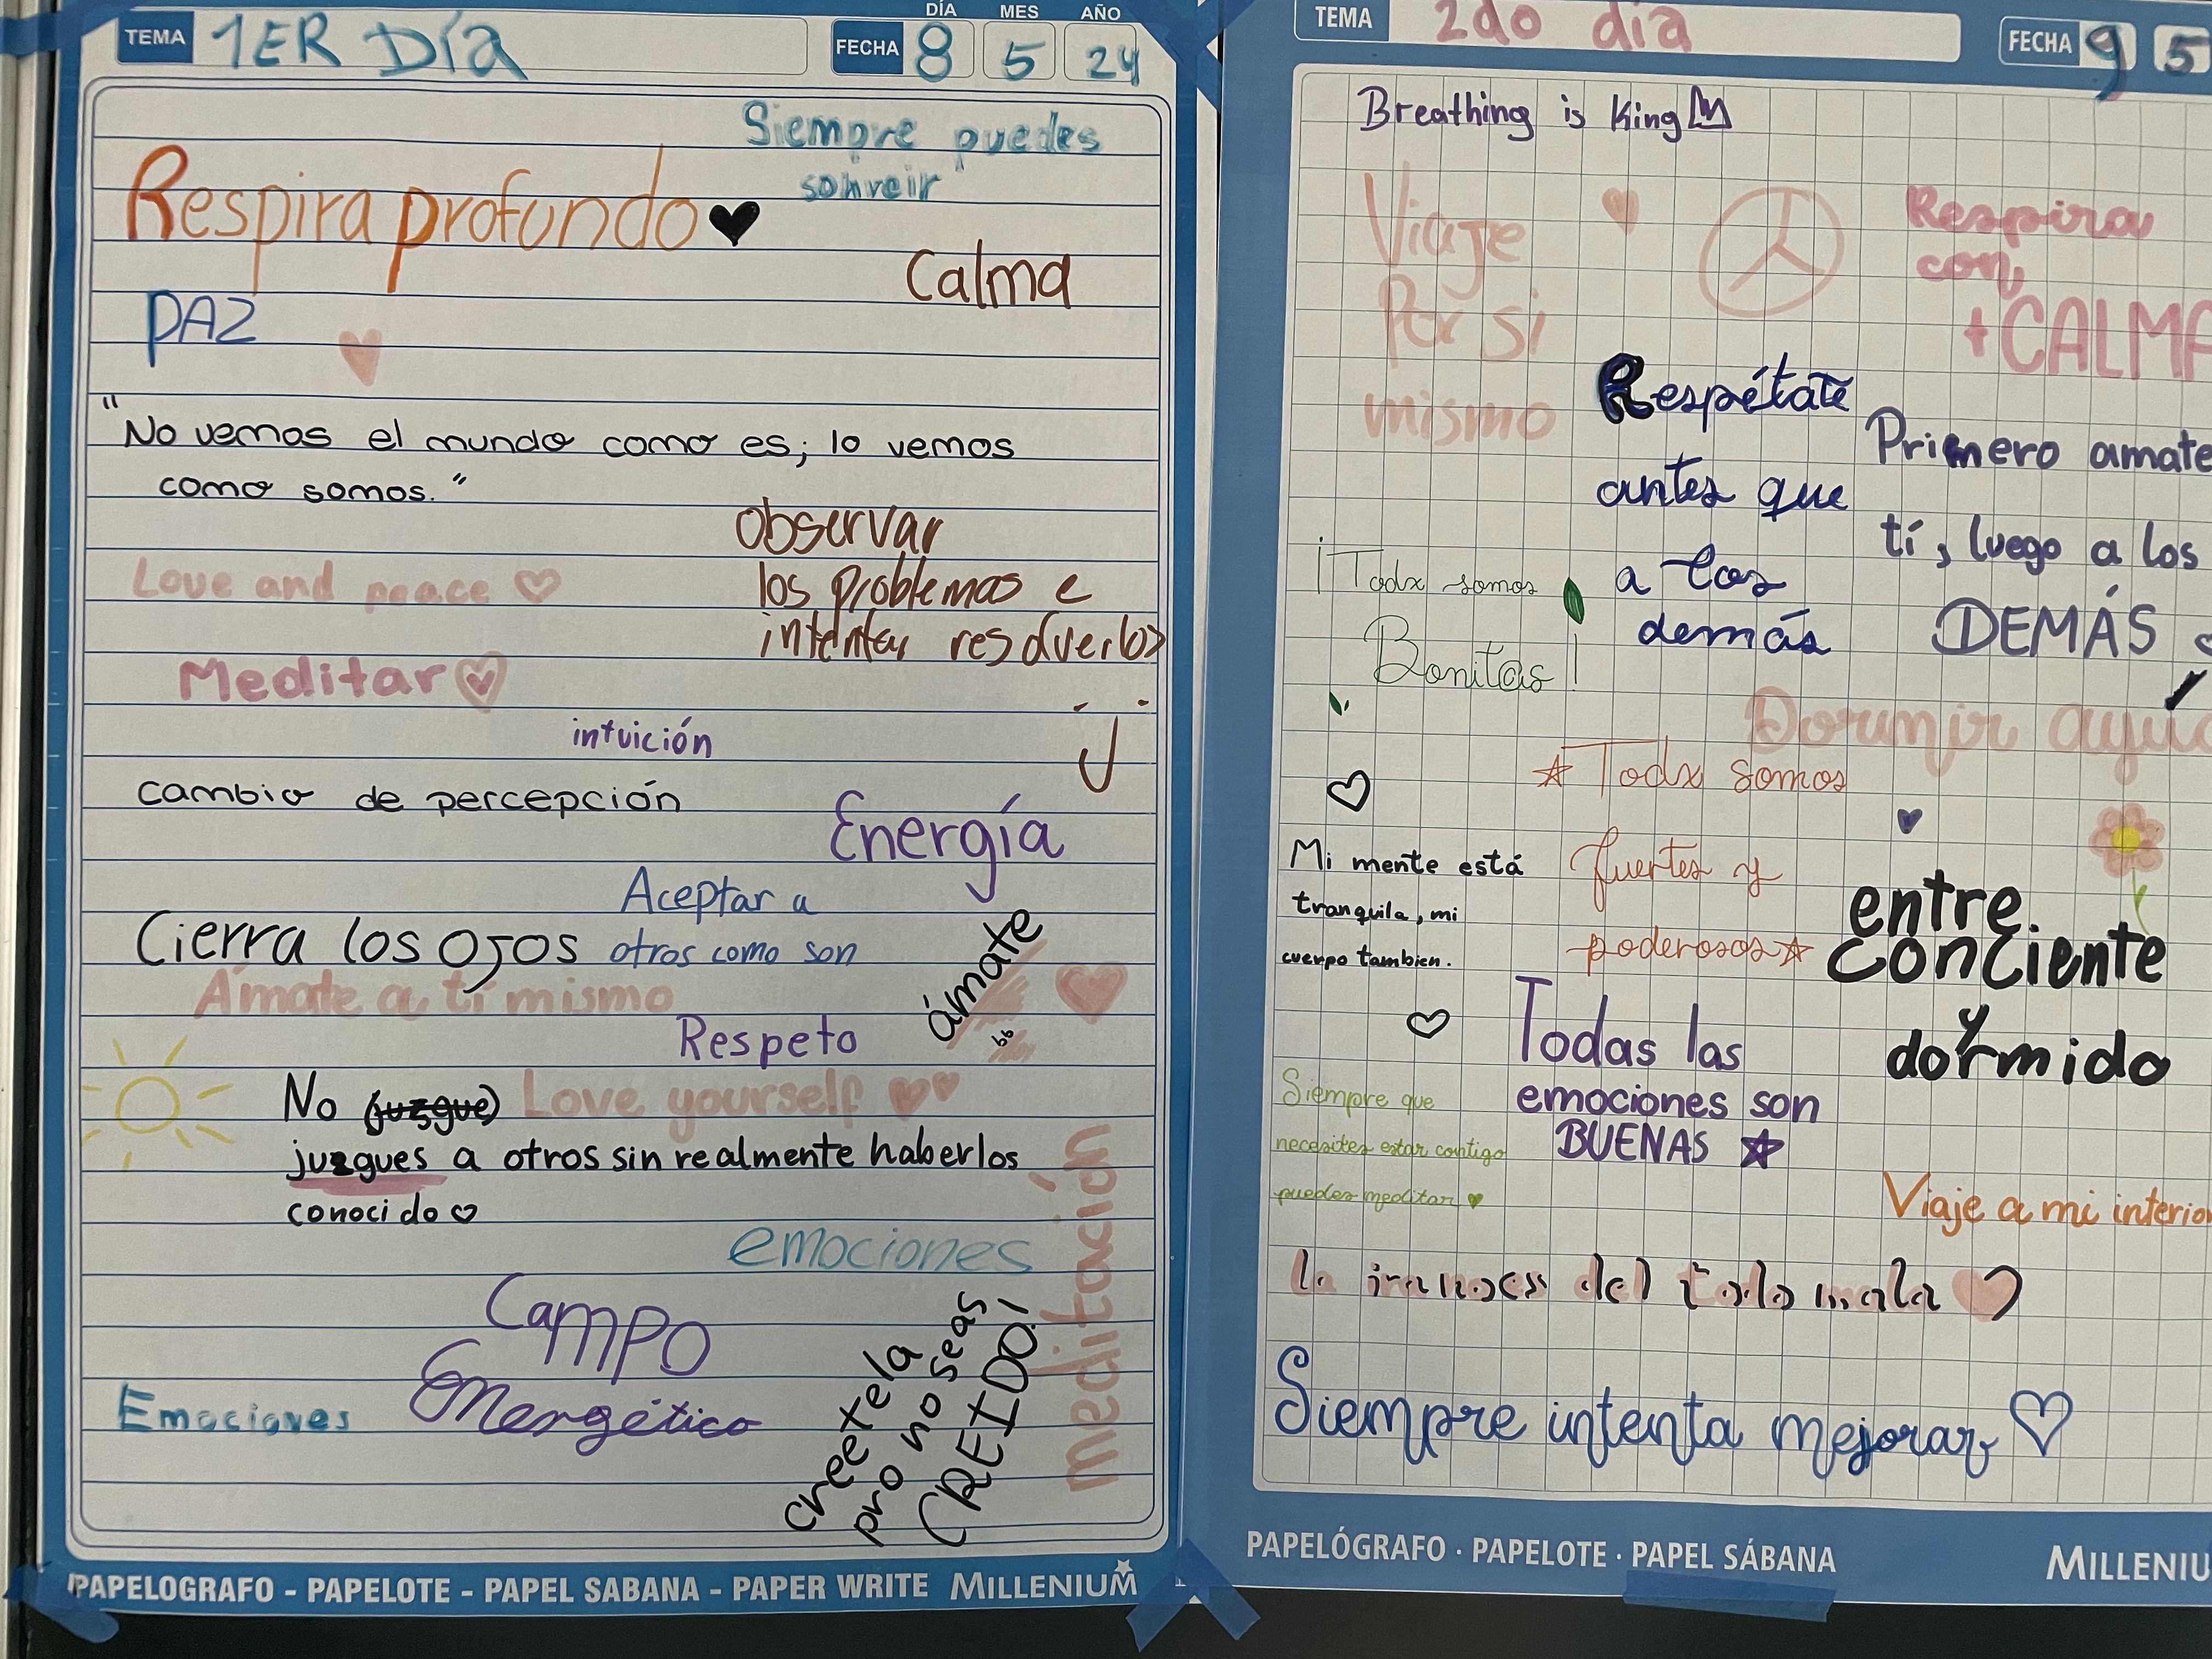 TEMA 1ER DÍA
FECHA
DÍA MES AÑO
8 5 24
Siempre puedes
sonreir
Respira profundo
Calma
PAZ
"No vemos el mundo como es; lo vemos
como somos."
Observar
los problemas e
intentar resolverlos
Love and peace
Meditar
intuición
cambio de percepción
Energía
Aceptar a
otros como son
Cierra los ojos
Ámate a ti mismo
ámate
bb
Respeto
No (juzgue)
Love yourself
juzgues a otros sin realmente haberlos
conocido
emociones
meditación
Campo
Energético
Emociones
creetela
pro no seas
CREIDO!
PAPELOGRAFO - PAPELOTE - PAPEL SABANA - PAPER WRITE MILLENIUM
TEMA 2do día
FECHA 9 5
Breathing is King
Viaje
Por si
mismo
Respira
con
+CALMA
Respétate
antes que
a los
demás
Primero amate
tí, luego a los
DEMÁS
¡Todx somos
Bonit@s!
Dormir
Todx somos
fuertes y
poderosos
Mi mente está
tranquila, mi
cuerpo tambien.
entre
conciente
y
dormido
Todas las
emociones son
BUENAS
Siempre que
necesites estar contigo
puedes meditar
Viaje a mi interior
la ira no es del todo mala
Siempre intenta mejorar
PAPELÓGRAFO · PAPELOTE · PAPEL SÁBANA
MILLENIU